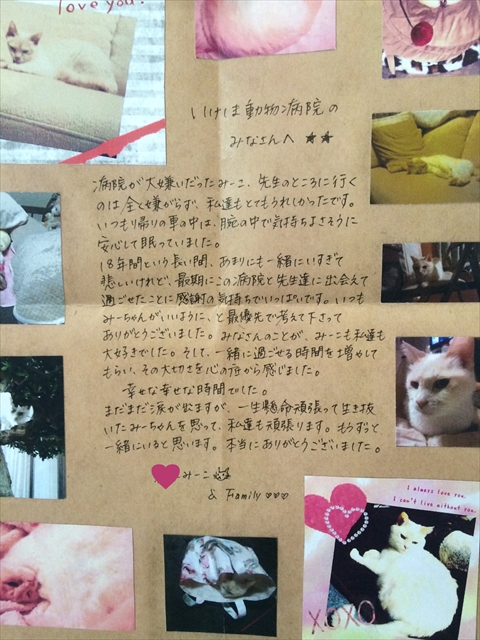 love you!
いけじま動物病院の
みなさんへ ★★
病院が大嫌いだったみーこ、先生のところに行く
のは全く嫌がらず、私達もとてもうれしかったです。
いつも帰りの車の中は、腕の中で気持ちよさそうに
安心して眠っていました。
18年間という長い間、あまりにも一緒にいすぎて
悲しいけれど、最期にこの病院と先生達に出会えて
過ごせたことに感謝の気持ちでいっぱいです。いつも
みーちゃんがいいように、と最優先で考えて下さって
ありがとうございました。みなさんのことが、みーこも私達も
大好きでした。そして、一緒に過ごせる時間を増やして
もらい、その大切さを心の底から感じました。
幸せな幸せな時間でした。
まだまだ涙が出ますが、一生懸命頑張って生き抜
いたみーちゃんを思って、私達も頑張ります。もうずっと
一緒にいると思います。本当にありがとうございました。
みーこ
& Family ♡♡♡
I always love you.
I can't live without you.
XOXO